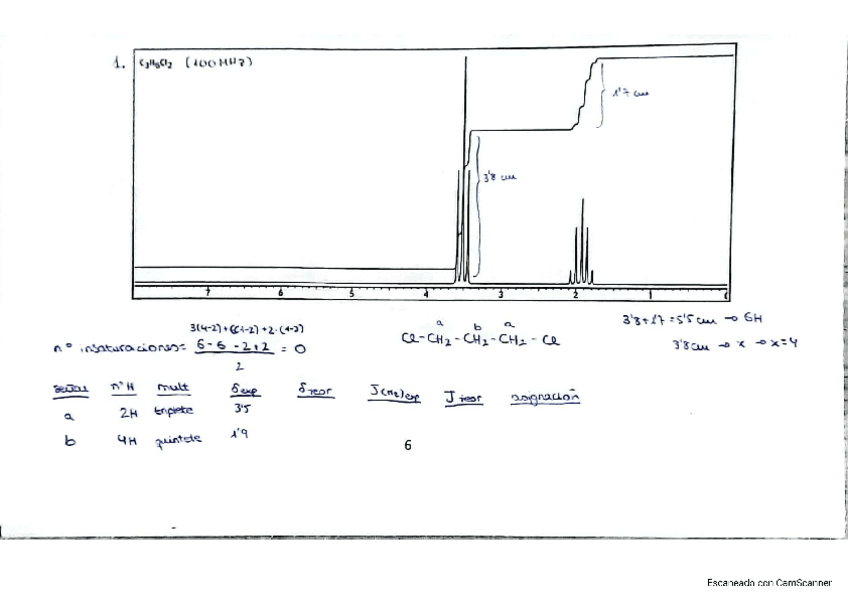 1. C3H6Cl2 (100MHz)
1'7 cm
3'8 cm
7 6 5 4 3 2 1 0
3(4-2)+6(1-2)+2·(1-2)
nº insaturaciones = 6-6-2+2 = 0
2
a b a
Cl-CH2-CH2-CH2-Cl
3'8+1'7=5'5cm → 6H
3'8cm → x → x=4
señal nºH mult δexp δteor J(Hz)exp Jteor asignación
a 2H triplete 3'5
b 4H quintete 1'9
6
Escaneado con CamScanner